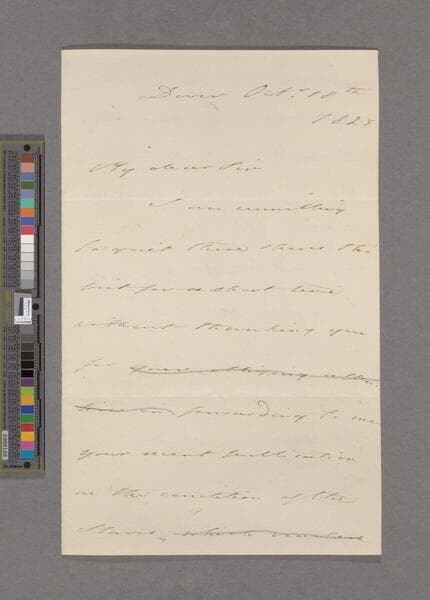 Dover Oct.r 18th
1825
My dear Sir
I am unwilling
to quit these shores tho
but for a short time
without thanking you
for your obliging atten
tion in forwarding to me
your recent publication
on the condition of the
Slaves, which reached